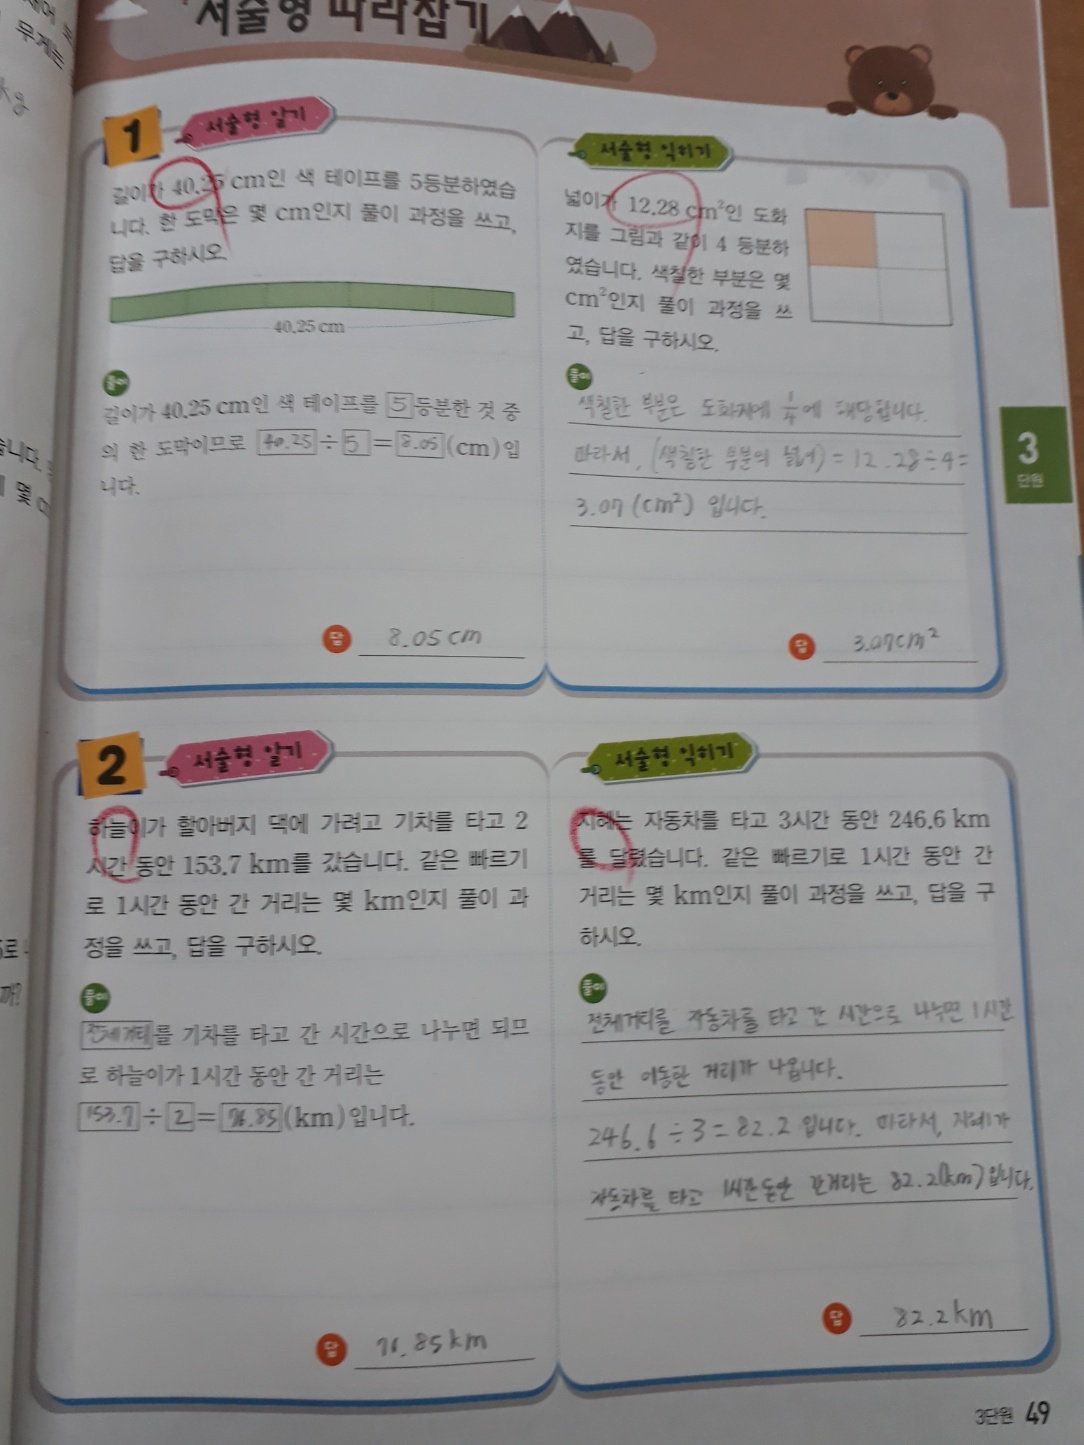 서술형 따라잡기
1
서술형 알기
길이가 40.25 cm인 색 테이프를 5등분하였습
니다. 한 도막은 몇 cm인지 풀이 과정을 쓰고,
답을 구하시오.
40.25 cm
풀이
길이가 40.25 cm인 색 테이프를 5등분한 것 중
의 한 도막이므로 40.25÷5=8.05(cm)입
니다.
답 8.05cm
서술형 익히기
넓이가 12.28 cm²인 도화
지를 그림과 같이 4 등분하
였습니다. 색칠한 부분은 몇
cm²인지 풀이 과정을 쓰
고, 답을 구하시오.
풀이
색칠한 부분은 도화지에 1/4에 해당합니다.
따라서, (색칠한 부분의 넓이)=12.28÷4=
3.07(cm²) 입니다.
답 3.07cm²
2
서술형 알기
하늘이가 할아버지 댁에 가려고 기차를 타고 2
시간 동안 153.7 km를 갔습니다. 같은 빠르기
로 1시간 동안 간 거리는 몇 km인지 풀이 과
정을 쓰고, 답을 구하시오.
풀이
전체거리를 기차를 타고 간 시간으로 나누면 되므
로 하늘이가 1시간 동안 간 거리는
153.7÷2=76.85(km)입니다.
답 76.85km
서술형 익히기
지혜는 자동차를 타고 3시간 동안 246.6 km
를 달렸습니다. 같은 빠르기로 1시간 동안 간
거리는 몇 km인지 풀이 과정을 쓰고, 답을 구
하시오.
풀이
전체거리를 자동차를 타고 간 시간으로 나누면 1시간
동안 이동한 거리가 나옵니다.
246.6÷3=82.2입니다. 따라서, 지혜가
자동차를 타고 1시간동안 간거리는 82.2(km)입니다.
답 82.2km
3
단원
3단원 49